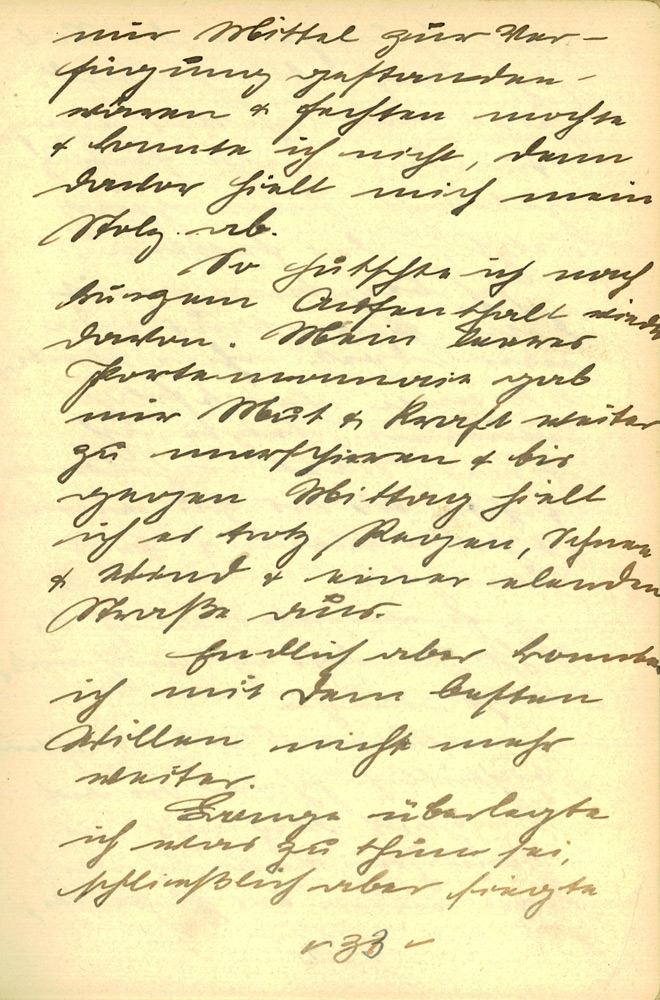 mir Mittel zur Ver-
fügung gestanden
wären & fechten mochte
& konnte ich nicht, denn
davor hielt mich mein
Stolz ab.
So hutschte ich nach
kurzem Aufenthalt wieder
davon. Mein leeres
Portemonnaie gab
mir Mut & Kraft weiter
zu marschieren & bis
gegen Mittag hielt
ich es trotz Regen, Schnee
& Wind & einer elenden
Straße aus.
Endlich aber konnte
ich mit dem besten
Willen nicht mehr
weiter.
Lange überlegte
ich was zu thun sei,
schließlich aber siegte
- 33 -